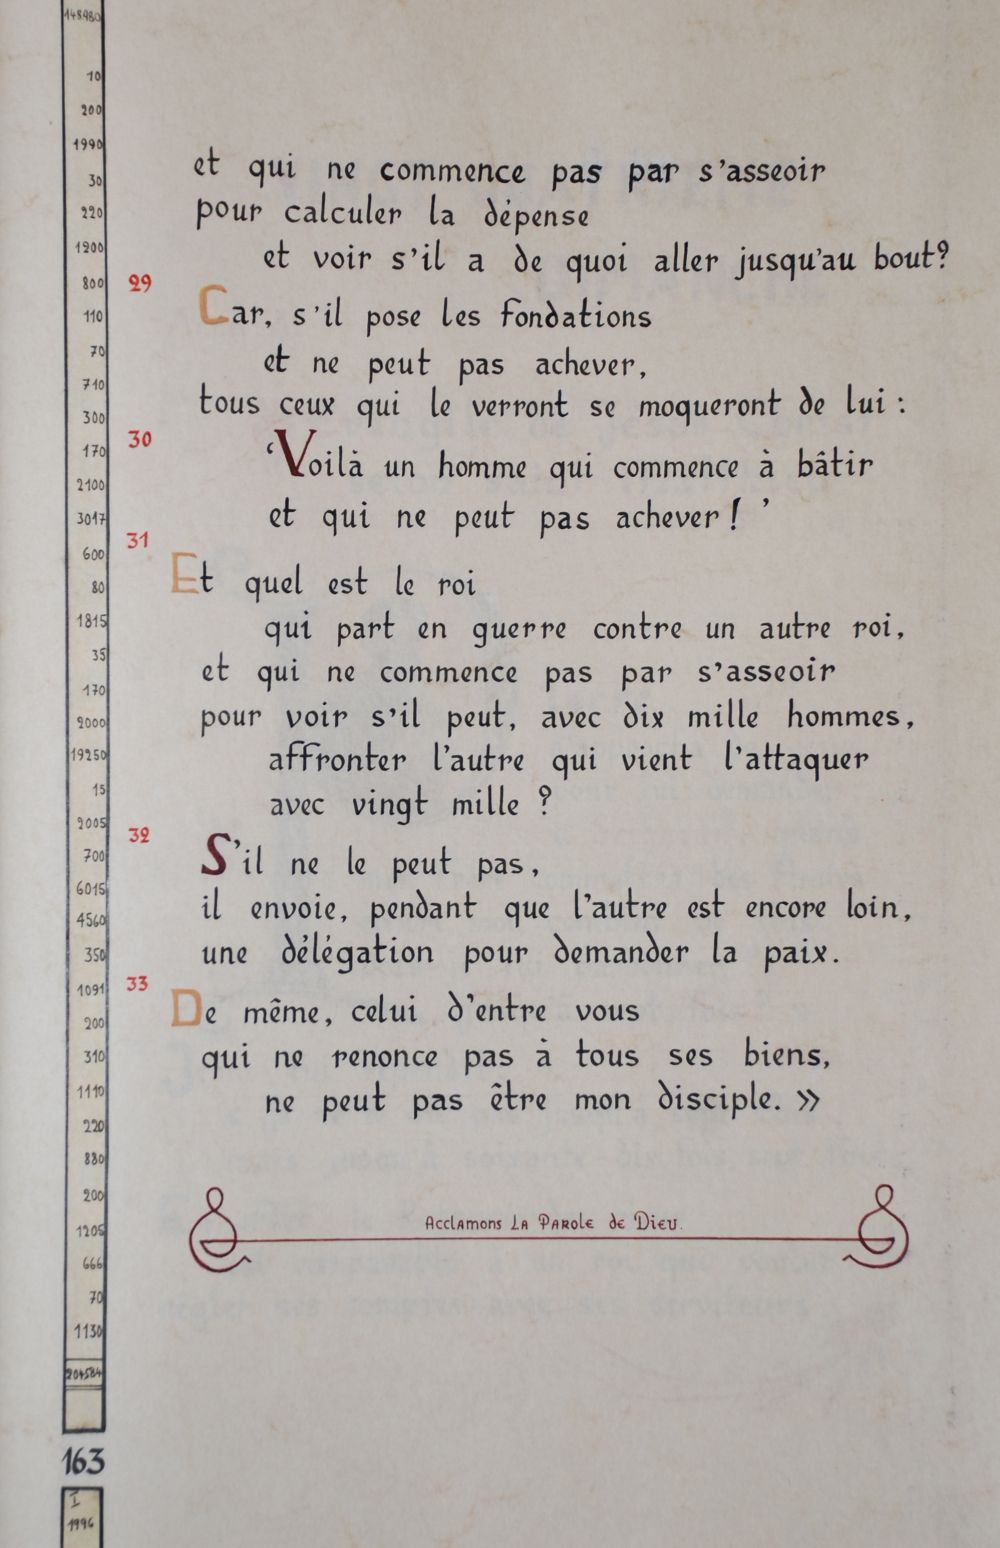 148980
10
200
1990
30
220
1200
800
110
70
710
300
170
2100
3017
600
80
1815
35
170
2000
19250
15
2005
700
6015
4560
350
1091
200
310
1110
220
880
200
1205
666
70
1130
204584
163
I
1996
et qui ne commence pas par s'asseoir
pour calculer la dépense
et voir s'il a de quoi aller jusqu'au bout?
29
Car, s'il pose les fondations
et ne peut pas achever,
tous ceux qui le verront se moqueront de lui :
30
‘Voilà un homme qui commence à bâtir
et qui ne peut pas achever ! ’
31
Et quel est le roi
qui part en guerre contre un autre roi,
et qui ne commence pas par s'asseoir
pour voir s'il peut, avec dix mille hommes,
affronter l'autre qui vient l'attaquer
avec vingt mille ?
32
S'il ne le peut pas,
il envoie, pendant que l'autre est encore loin,
une délégation pour demander la paix.
33
De même, celui d'entre vous
qui ne renonce pas à tous ses biens,
ne peut pas être mon disciple. »
Acclamons la Parole de Dieu.